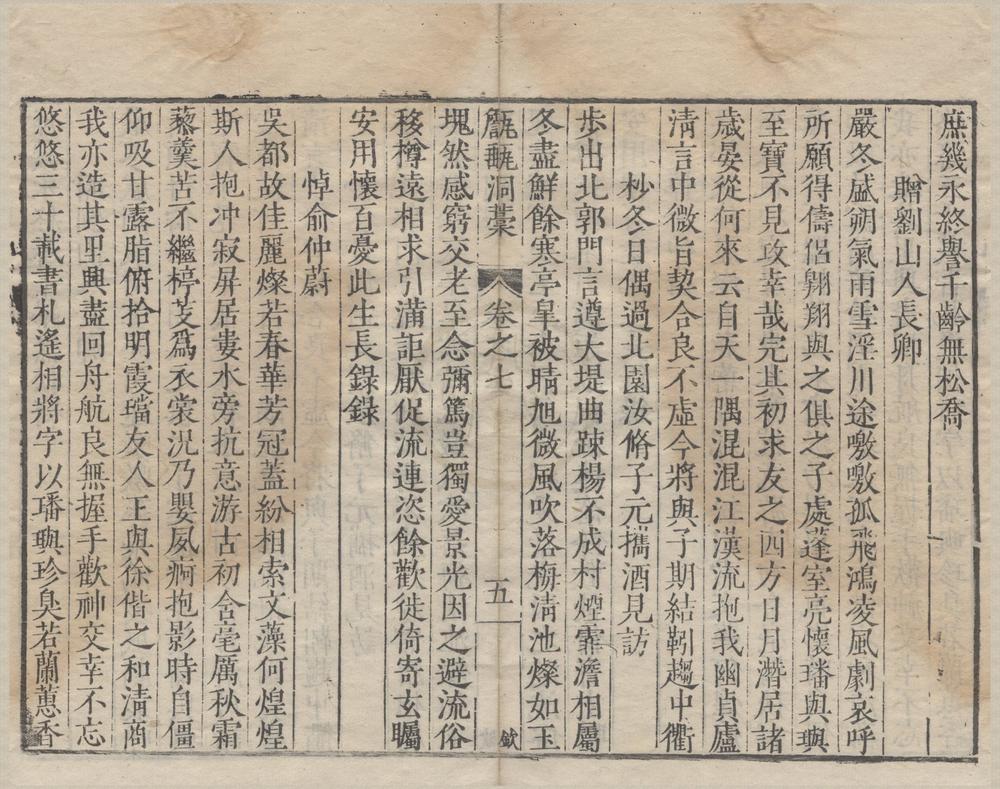 庶幾永終譽千齡無松喬
贈劉山人長卿
嚴冬盛朔氣雨雪淫川途嗷嗷孤飛鴻凌風劇哀呼
所願得儔侶翱翔與之俱之子處蓬室亮懷璠與璵
至寶不見攻幸哉完其初求友之四方日月濳居諸
歲晏從何來云自天一隅混混江漢流抱我幽貞廬
淸言中微旨契合良不虛今將與子期結靷趨中衢
杪冬日偶過北園汝脩子元攜酒見訪
步出北郭門言遵大堤曲疎楊不成村煙霏澹相屬
冬盡鮮餘寒亭皐被晴旭微風吹落梅淸池燦如玉
甔甀洞藁
卷之七
五
欽
塊然感窮交老至念彌篤豈獨愛景光因之避流俗
移樽遠相求引滿詎厭促流連恣餘歡徙倚寄玄矚
安用懷百憂此生長錄錄
悼俞仲蔚
吳都故佳麗燦若春華芳冠蓋紛相索文藻何煌煌
斯人抱冲寂屏居婁水旁抗意游古初含毫厲秋霜
藜羹苦不繼楟芰爲衣裳況乃嬰夙痾抱影時自僵
仰吸甘露脂俯拾明霞璫友人王與徐偕之和淸商
我亦造其里興盡回舟航良無握手歡神交幸不忘
悠悠三十載書札遙相將字以璠璵珍臭若蘭蕙香